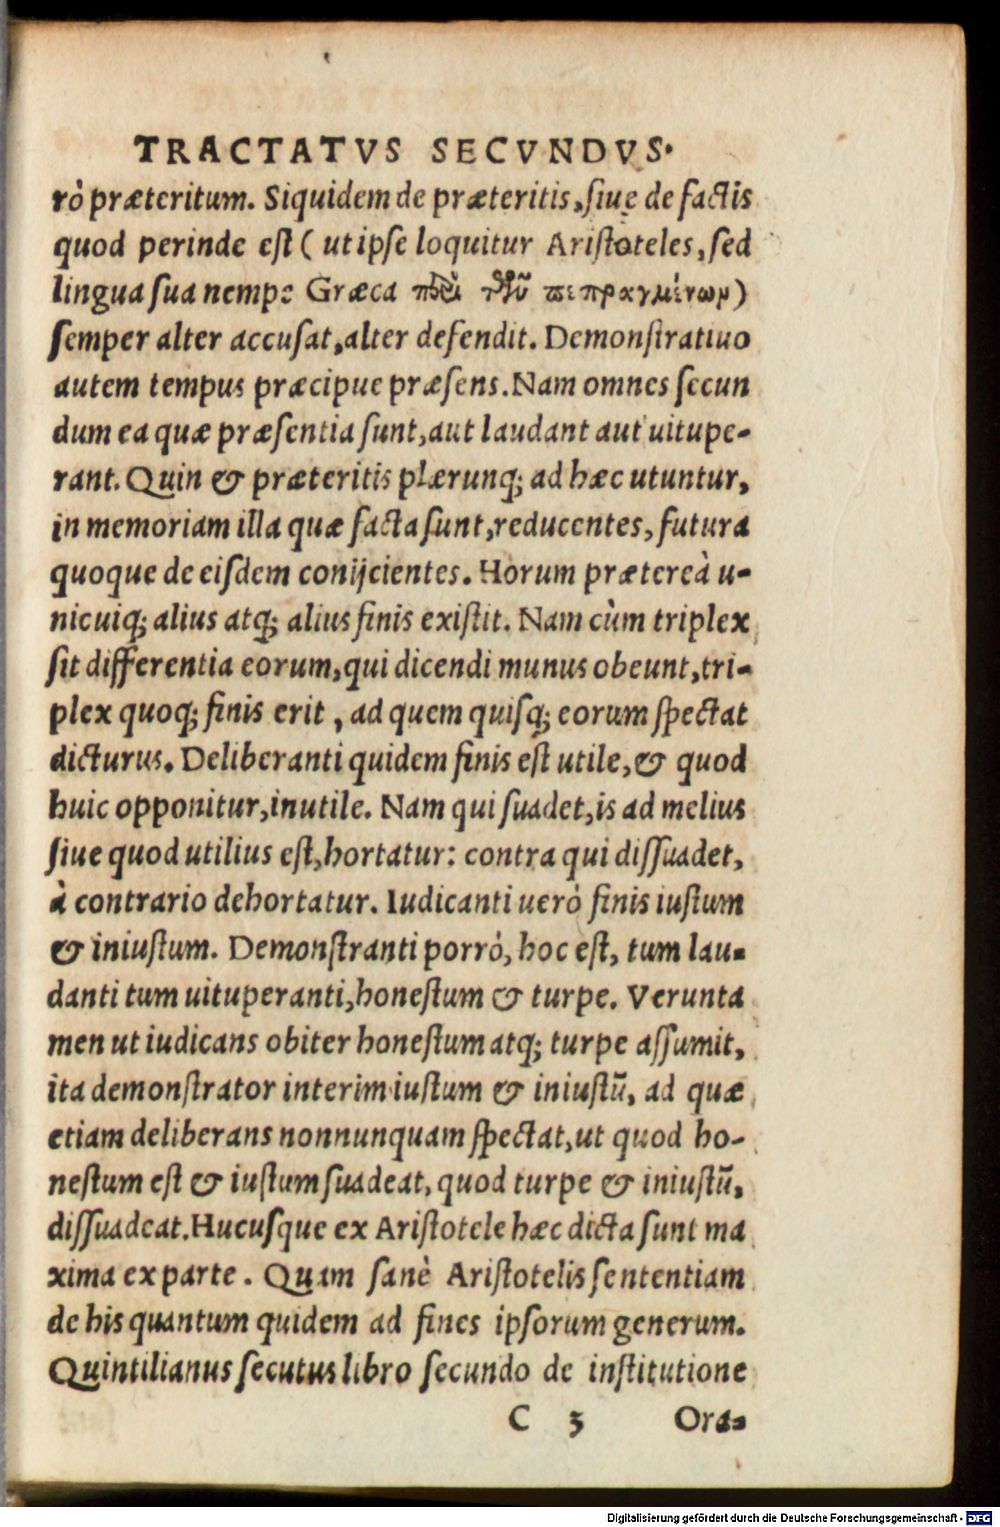 TRACTATVS SECVNDVS.
rò præteritum. Siquidem de præteritis, ſiue de factis
quod perinde eſt ( ut ipſe loquitur Ariſtoteles, ſed
lingua ſua nempe Græca περὶ τῶν πεπραγμένων)
ſemper alter accuſat, alter defendit. Demonſtratiuo
autem tempus præcipue præſens. Nam omnes ſecun
dum ea quæ præſentia ſunt, aut laudant aut uitupe-
rant. Quin & præteritis plærunq; ad hæc utuntur,
in memoriam illa quæ facta ſunt, reducentes, futura
quoque de eiſdem conijcientes. Horum prætereà u-
nicuiq; alius atq; alius finis exiſtit. Nam cùm triplex
ſit differentia eorum, qui dicendi munus obeunt, tri-
plex quoq; finis erit, ad quem quiſq; eorum ſpectat
dicturus. Deliberanti quidem finis eſt utile, & quod
huic opponitur, inutile. Nam qui ſuadet, is ad melius
ſiue quod utilius eſt, hortatur: contra qui diſſuadet,
à contrario dehortatur. Iudicanti uerò finis iuſtum
& iniuſtum. Demonſtranti porrò, hoc eſt, tum lau-
danti tum uituperanti, honeſtum & turpe. Verunta
men ut iudicans obiter honeſtum atq; turpe aſſumit,
ita demonſtrator interim iuſtum & iniuſtũ, ad quæ
etiam deliberans nonnunquam ſpectat, ut quod ho-
neſtum eſt & iuſtum ſuadeat, quod turpe & iniuſtũ,
diſſuadeat. Hucuſque ex Ariſtotele hæc dicta ſunt ma
xima ex parte. Quam ſanè Ariſtotelis ſententiam
de his quantum quidem ad fines ipſorum generum.
Quintilianus ſecutus libro ſecundo de inſtitutione
C 3 Ora-
Digitalisierung gefördert durch die Deutsche Forschungsgemeinschaft - DFG